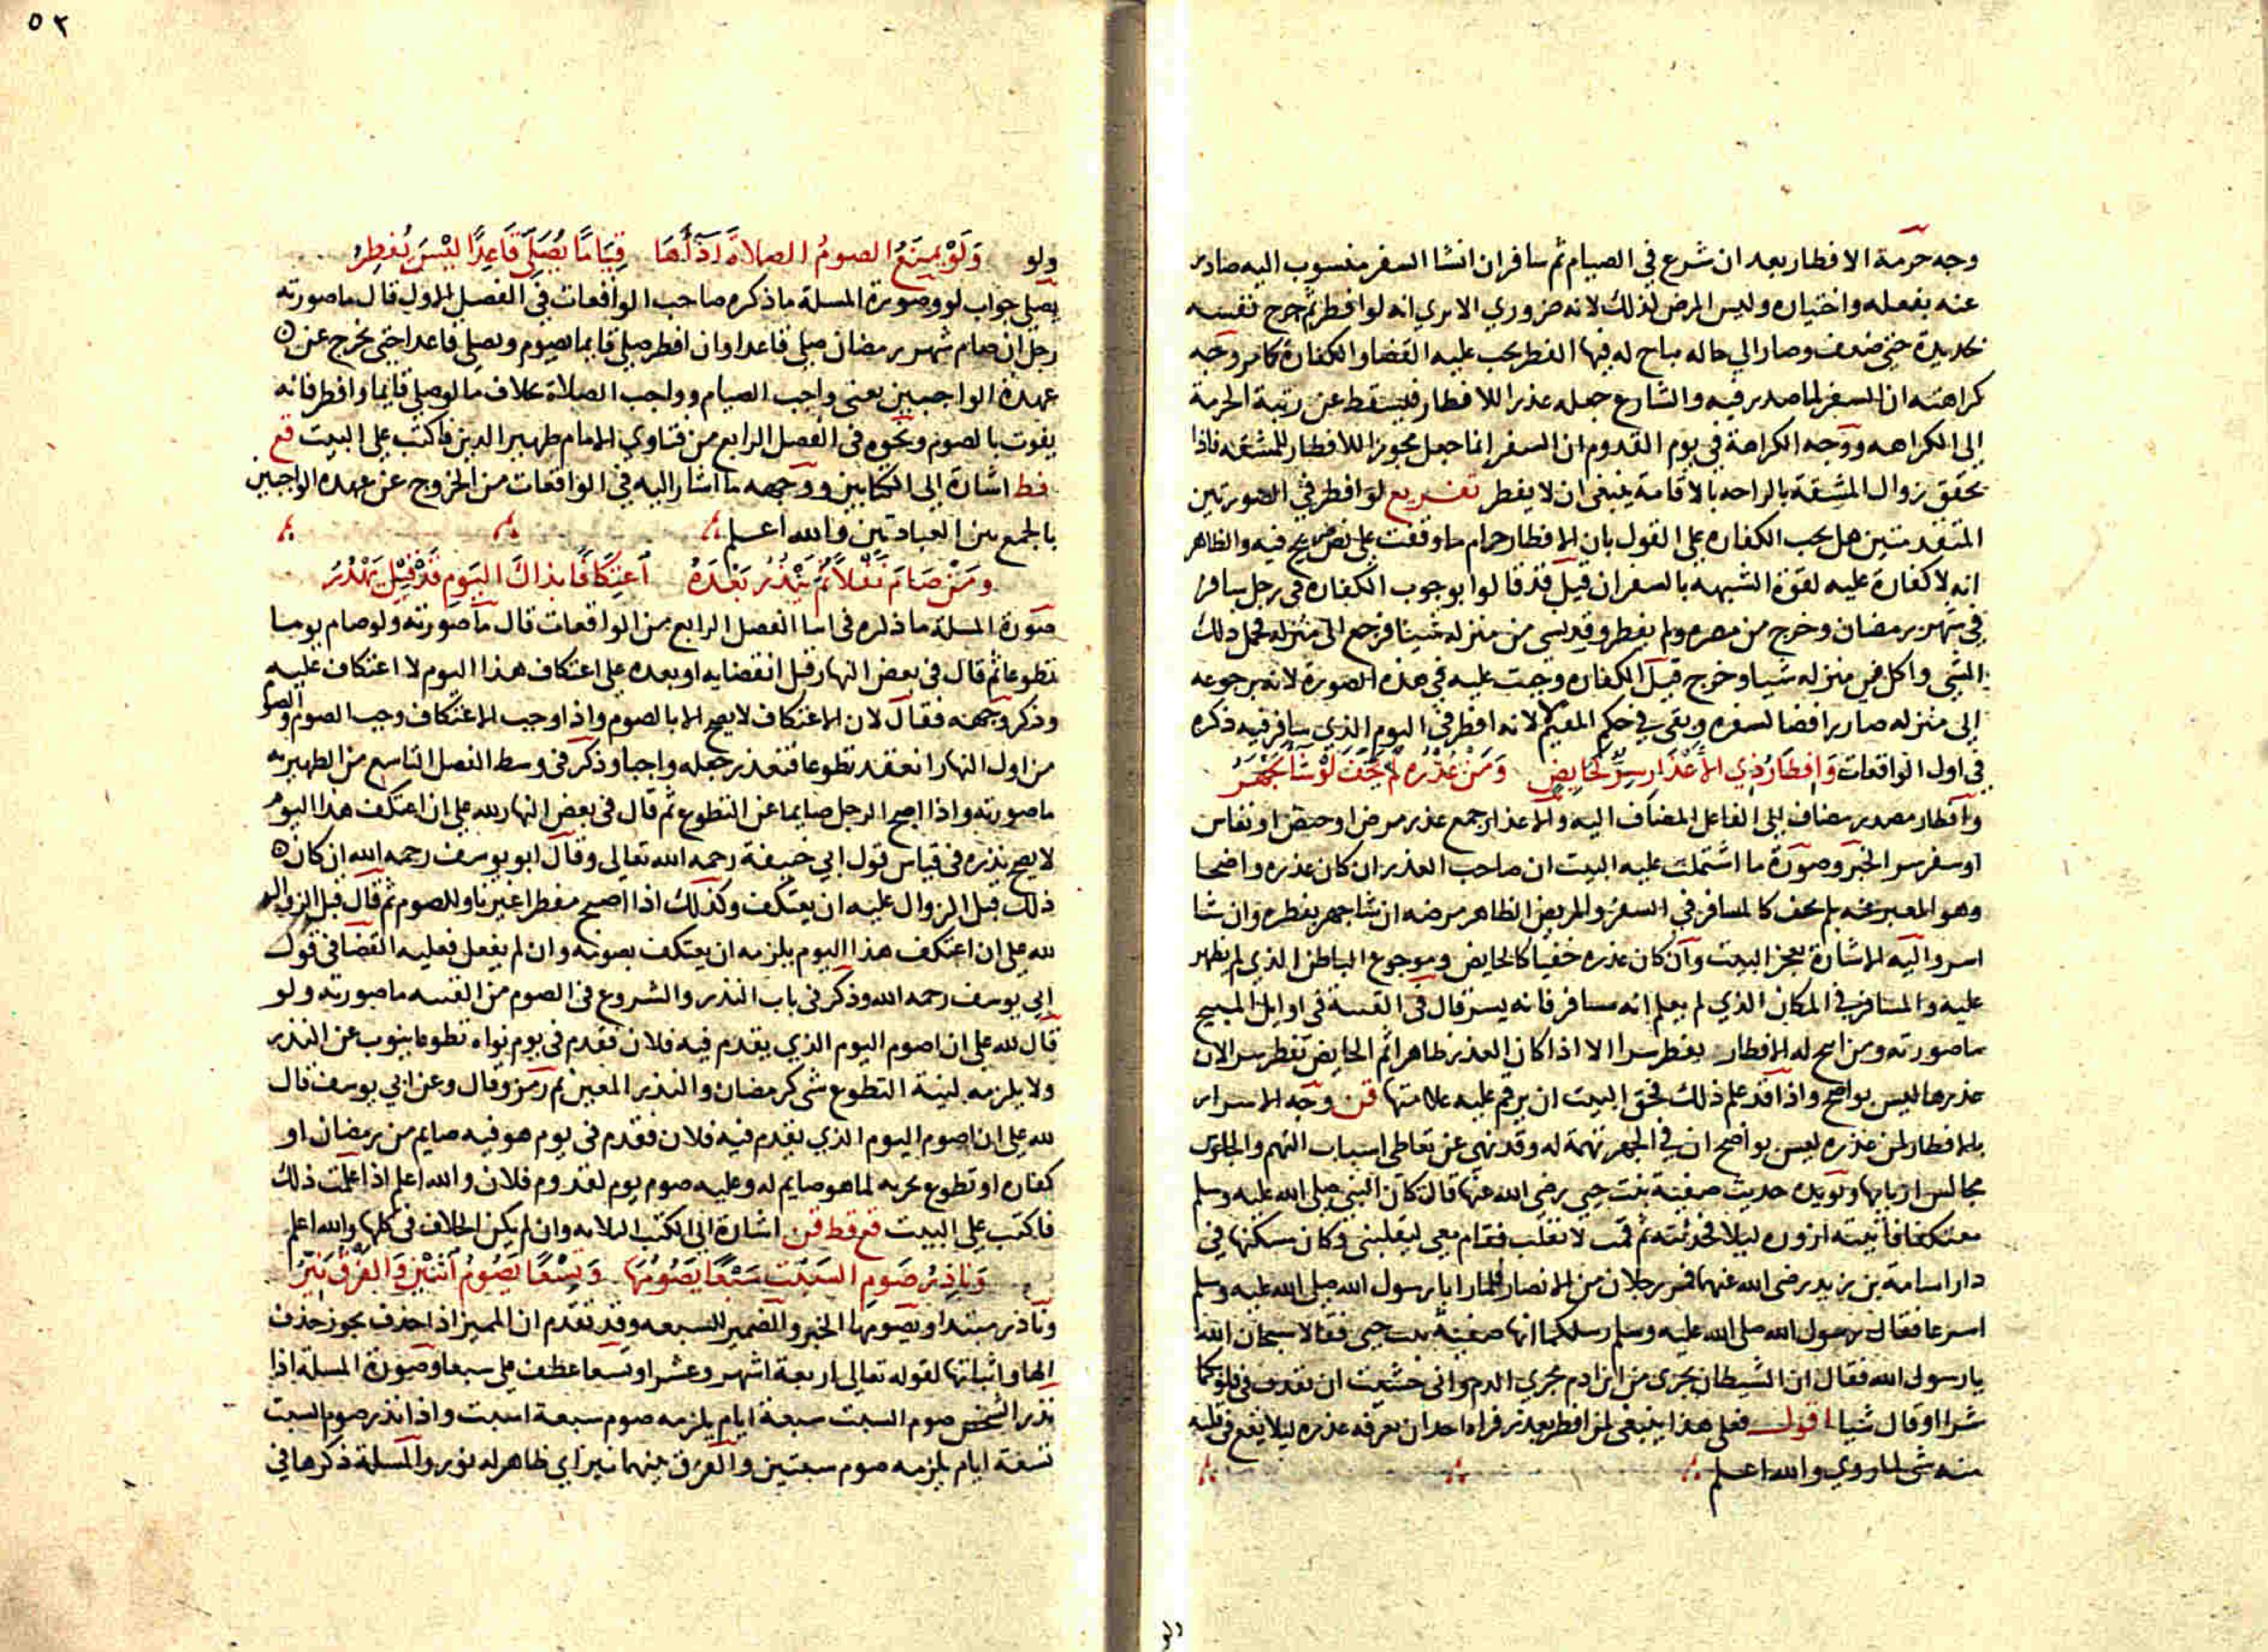 وجه حرمة الافطار بعد ان شرع في الصيام ثم سافر ان انشا السفر منسوب اليه صادر
عنه بفعله واختياره وليس المرض كذلك لانه ضروري الا يري انه لو افطر ثم جرح نفسه
حتى ضعف وصار الي حالة يباح له فيها الفطر يجب عليه القضا والكفارة كما مر ووجه
كراهته ان السفر لما صدر فيه والشارع جعله عذرا للافطار فليسقط عن رتبة الحرمة
الي الكراهه ووجه الكراهة في يوم القدوم ان السفر انما جعل مجوزا للافطار للمشقه فاذا
تحقق زوال المشقة بالراحه بالاقامة ينبغي ان لا يفطر تفريع لو افطر في الصورتين
المتقدمتين هل يجب الكفاره على القول بان الافطار حرام ما وقفت على نص صريح فيه والظاهر
انه لا كفارة عليه لقوة الشبهه بالسفر ان قيل قد قالوا بوجوب الكفاره في رجل سافر
في شهر رمضان وخرج من مصره ولم يفطر وقد نسى من منزله شيئا فرجع الي منزله فحمل ذلك
الشي واكل في منزله شيا وخرج قيل الكفاره وجبت عليه في هذه الصورة لانه برجوعه
الي منزله صار رافضا لسفره وبقى في حكم المقيم لانه افطر في اليوم الذي سافر فيه ذكره
في اول الواقعات وَافطَارُ ذِي الأعْذَارِ سِرّ كحَايِضٍ وَمَنْ عُذْرُه لَم يَخفَ لَوْ شَا يَجْهَرُ
وافطار مصدر مضاف الى الفاعل المضاف اليه والاعذار جمع عذر مرض او حيض او نفاس
او سفر سر الخبر وصورة ما اشتملت عليه البيت ان صاحب العذر ان كان عذره واضحا
وهو المعبر عنه بلم يخف كالمسافر في السفر والمريض الظاهر مرضه ان شا جهر بفطره وان شا
اسر واليه الاشارة بعجز البيت وان كان عذره خفيا كالحايض وموجوع الباطن الذي لم يظهر
عليه والمسافر في المكان الذي لم يعلم انه مسافر فانه يسر قال في القنية في اوايل المبيح
ما صورته ومن ابيح له الافطار يفطر سرا الا اذا كان العذر ظاهرا ثم الحايض تفطر سرا لان
عذرها ليس بواضح واذا قد علم ذلك فحق البيت ان يرقم عليه علامتها قن ووجه الاسرار
بالافطار لمن عذره ليس بواضح ان في الجهر تهمة له وقد نهي عن تعاطي اسباب التهم والجلوس
مجالس اربابها ويويده حديث صفية بنت حيي رضي الله عنها قال كان النبي صلى الله عليه وسلم
معتكفا فاتيته ازوره ليلا فحدثته ثم قمت لانقلب فقام معي ليقلبني وكان مسكنها في
دار اسامة بن زيد رضي الله عنهما فمر رجلان من الانصار فلما رايا رسول الله صلى الله عليه وسلم
اسرعا فقال رسول الله صلى الله عليه وسلم رسلكما انها صفية بنت حيي فقالا سبحان الله
يا رسول الله فقال ان الشيطان يجرى من ابن ادم مجرى الدم واني خشيت ان يقذف في قلوبكما
شرا او قال شيا اقول فعلى هذا ينبغي لمن افطر بعذر فراه احد ان يعرفه عذره ليلا يقع في قلبه
منه شي لما روي والله اعلم
ولو
٥٢
ولو وَلَوْ يمنَعُ الصومُ الصلاةَ اَدَآءَهَا قِيَامًا يُصَلّي قَاعِدًا لَيْسَ يُفطِرُ
يصلي جواب لو وصورة المسلة ما ذكره صاحب الواقعات في الفصل الاول قال ما صورته
رجل ان صام شهر رمضان صلى قاعدا وان افطر صلى قايما يصوم ويصلي قاعدا حتى يخرج عن
عهدة الواجبين يعني واجب الصيام وواجب الصلاة بخلاف ما لو صلى قايما وافطر فانه
يفوت بالصوم ونحوه في الفصل الرابع من فتاوي الامام ظهير الدين فاكتب على البيت قع
فط اشارة الي الكتابين ووجهه ما اشار اليه في الواقعات من الخروج عن عهده الواجبين
بالجمع بين العبادتين والله اعلم
ومَنْ صَامَ نَفْلاً ثُمَّ يَنْذُرُ بَعْدَهُ اَعتِكَافًا بذاكَ اليَومِ قَدْ قِيْلَ يَهْدُرُ
صورة المسلة ما ذكره في اثنا الفصل الرابع من الواقعات قال ما صورته ولو صام يوما
تطوعا ثم قال في بعض النهار قبل انقضايه او بعده على اعتكاف هذا اليوم لا اعتكاف عليه
وذكر وجهه فقال لان الاعتكاف لا يصح الا بالصوم واذا وجب الاعتكاف وجب الصوم والصوم
من اول النهار انعقد تطوعا فتعذر جعله واجبا وذكر في وسط الفصل التاسع من الظهيريه
ما صورته واذا اصبح الرجل صايما عن التطوع ثم قال في بعض النهار لله علي ان اعتكف هذا اليوم
لا يصح نذره في قياس قول ابي حنيفة رحمه الله تعالى وقال ابو يوسف رحمه الله ان كان
ذلك قبل الزوال عليه ان يعتكف وكذلك اذا اصبح مفطرا غير ناو للصوم ثم قال قبل الزوال
لله علي ان اعتكف هذا اليوم يلزمه ان يعتكف بصومه وان لم يفعل فعليه القضا في قول
ابي يوسف رحمه الله وذكر في باب النذر والشروع في الصوم من القنيه ما صورته ولو
قال لله علي ان اصوم اليوم الذي يقدم فيه فلان فقدم في يوم نواه تطوعا ينوب عن النذر
ولا يلزمه لنية التطوع شي كرمضان والنذر المعين ثم رمز وقال وعن ابي يوسف قال
لله علي ان اصوم اليوم الذي يقدم فيه فلان فقدم في يوم هو فيه صايم من رمضان او
كفاره او تطوع يجزيه لما هو صايم له وعليه صوم يوم لقدوم فلان والله اعلم اذا علمت ذلك
فاكتب على البيت قع فط قن اشارة الي الكتب الثلاثه وان لم يكن الخلاف في كلها والله اعلم
وَنَاذِرُ صَومِ السَبْتِ سَبْعًا يَصُومُهَا وَتِسْعًا يَصُومُ اثنَيْنِ وَالفرْقُ نَيّرُ
وناذر مبتدا ويصومها الخبر والضمير للسبعه وقد تقدم ان المميز اذا حذف يجوز حذف
الها واثباتها لقوله تعالى اربعة اشهر وعشرا وتسعا عطف على سبعا وصورة المسلة اذا
نذر الشخص صوم السبت سبعة ايام يلزمه صوم سبعة اسبت واذا نذر صوم السبت
تسعة ايام يلزمه صوم سبتين والفرق بينهما نير اي ظاهر له نور والمسلة ذكرها في